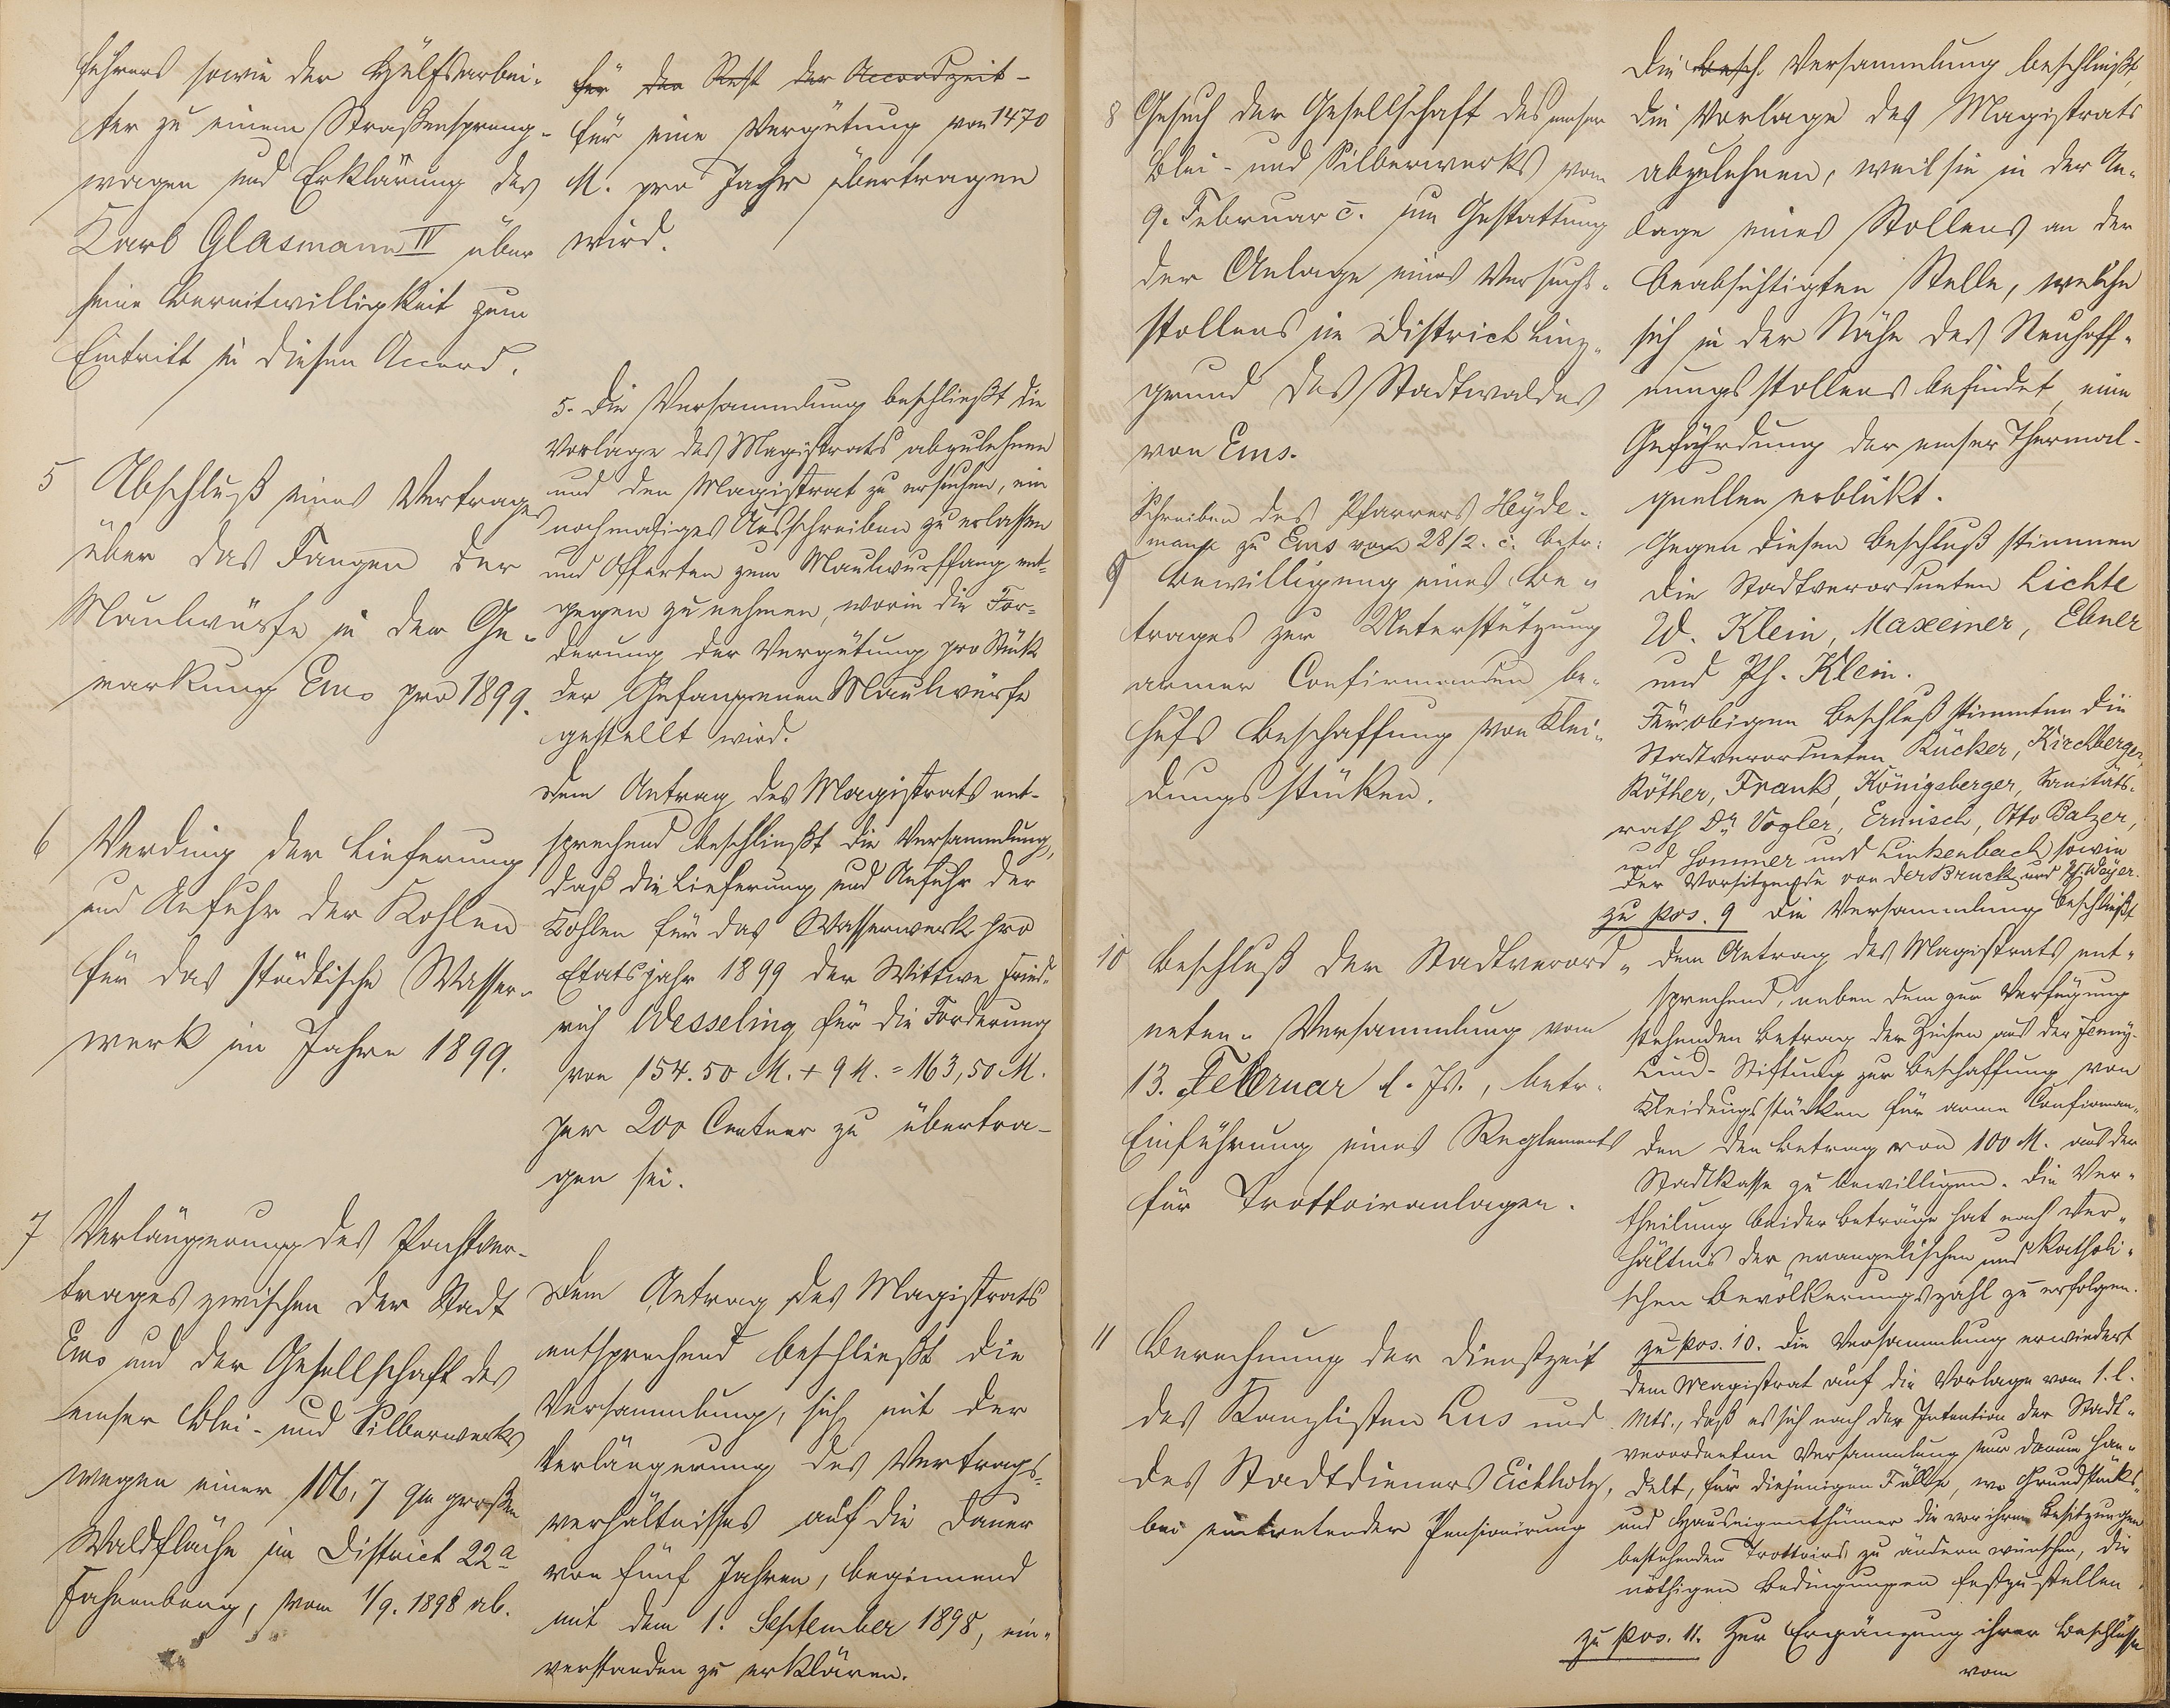 führers sowie der Hülfsarbei-
ter zu einem Straßenspreng-
wagen und Erklärung des
Karl Glasmann IV über
seine Bereitwilligkeit zum
Eintritt in diesen Accord.
5 Abschluß eines Vertrages
über das Fangen der
Maulwürfe in der Ge-
markung Ems pro 1899.
6 Verding der Lieferung
und Anfuhr der Kohlen
für das städtische Wasser-
werk im Jahre 1899.
7 Verlängerung des Pachtver-
trages zwischen der Stadt
Ems und der Gesellschaft des
emser Blei- und Silberwerks
wegen einer 106,7 qm großen
Waldfläche im District 22a
Fahnenberg, vom 1/9. 1898 ab.
für den Rest der Accordzeit -
für eine Vergütung von 1470
M. pro Jahr übertragen
wird.
5. Die Versammlung beschließt die
Vorlage des Magistrats abzulehnen
und den Magistrat zu ersuchen, ein
nochmaliges Ausschreiben zu erlassen
und Offerten zum Maulwurffang ent-
gegen zu nehmen, worin die For-
derung der Vergütung pro Stück
der Gefangenen Maulwürfe
gestellt wird.
Dem Antrag des Magistrats ent-
sprechend beschließt die Versammlung,
daß die Lieferung und Anfuhr der
Kohlen für das Wasserwerk pro
Etatsjahr 1899 der Wittwe Fried-
rich Wesseling für die Forderung
von 154.50 M. + 9 M. = 163,50 M.
per 200 Centner zu übertra-
gen sei.
Dem Antrag des Magistrats
entsprechend beschließt die
Versammlung, sich mit der
Verlängerung des Vertrags-
verhältnisses auf die Dauer
von fünf Jahren, beginnend
mit dem 1. September 1898, ein-
verstanden zu erklären.
8 Gesuch der Gesellschaft des emser
Blei- und Silberwerks vom
9. Februar c. um Gestattung
der Anlage eines Versuchs-
stollens im District Linz-
grund des Stadtwaldes
von Ems.
Schreiben des Pfarrers Heyde-
mann zu Ems vom 28/2. c. betr:
9 Bewilligung eines Be-
trages zur Unterstützung
armer Confirmanden be-
hufs Beschaffung von Klei-
dungsstücken.
10 Beschluß der Stadtverord-
neten-Versammlung vom
13. Februar l. Js., betr.
Einführung eines Reglements
für Trottoiranlagen.
11 Berechnung der Dienstzeit
des Kanzlisten Lus und
des Stadtdieners Eichholz,
bei eintretender Pensionirung
Die besch. Versammlung beschließt,
die Vorlage des Magistrats
abzulehnen, weil sie in der An-
lage eines Stollens an der
beabsichtigten Stelle, welche
sich in der Nähe des Neuhoff-
nungsstollens befindet, eine
Gefährdung der emser Thermal-
quellen erblickt.
Gegen diesen Beschluß stimmen
die Stadtverordneten Lichte
W. Klein, Maxeiner, Ebner
und Ph. Klein.
Für obigen Beschluß stimmten die
Stadtverordneten Rücker, Kirchberger,
Röther, Frank, Königsberger, Sanitäts-
rath Dr Vogler, Ermisch, Otto Balzer,
und Sommer und Linkenbach sowie
der Vorsitzende von der Bruck und Ph. Weyer.
zu pos. 9 Die Versammlung beschließt
dem Antrag des Magistrats ent-
sprechend, neben dem zur Verfügung
stehenden Betrag der Zinsen aus der Jenny-
Lind-Stiftung zur Beschaffung von
Kleidungsstücken für arme Confirman-
den den Betrag von 100 M. aus der
Stadtkasse zu bewilligen. Die Ver-
theilung beider Beträge hat nach Ver-
hältnis der evangelischen und katholi-
schen Bevölkerungszahl zu erfolgen.
zu pos. 10. Die Versammlung erwiedert
dem Magistrat auf die Vorlage vom 1. l.
Mts., daß es sich nach der Intention der Stadt-
verordneten Versammlung nur darum han-
delt, für diejenigen Fälle, wo Grundstücks-
und Hauseigenthümer die vor ihren Besitzungen
bestehenden Trottoirs zu ändern wünschen, die
nöthigen Bedingungen festzustellen.
zu pos. 11. Zur Ergänzung ihrer Beschlüsse
vom